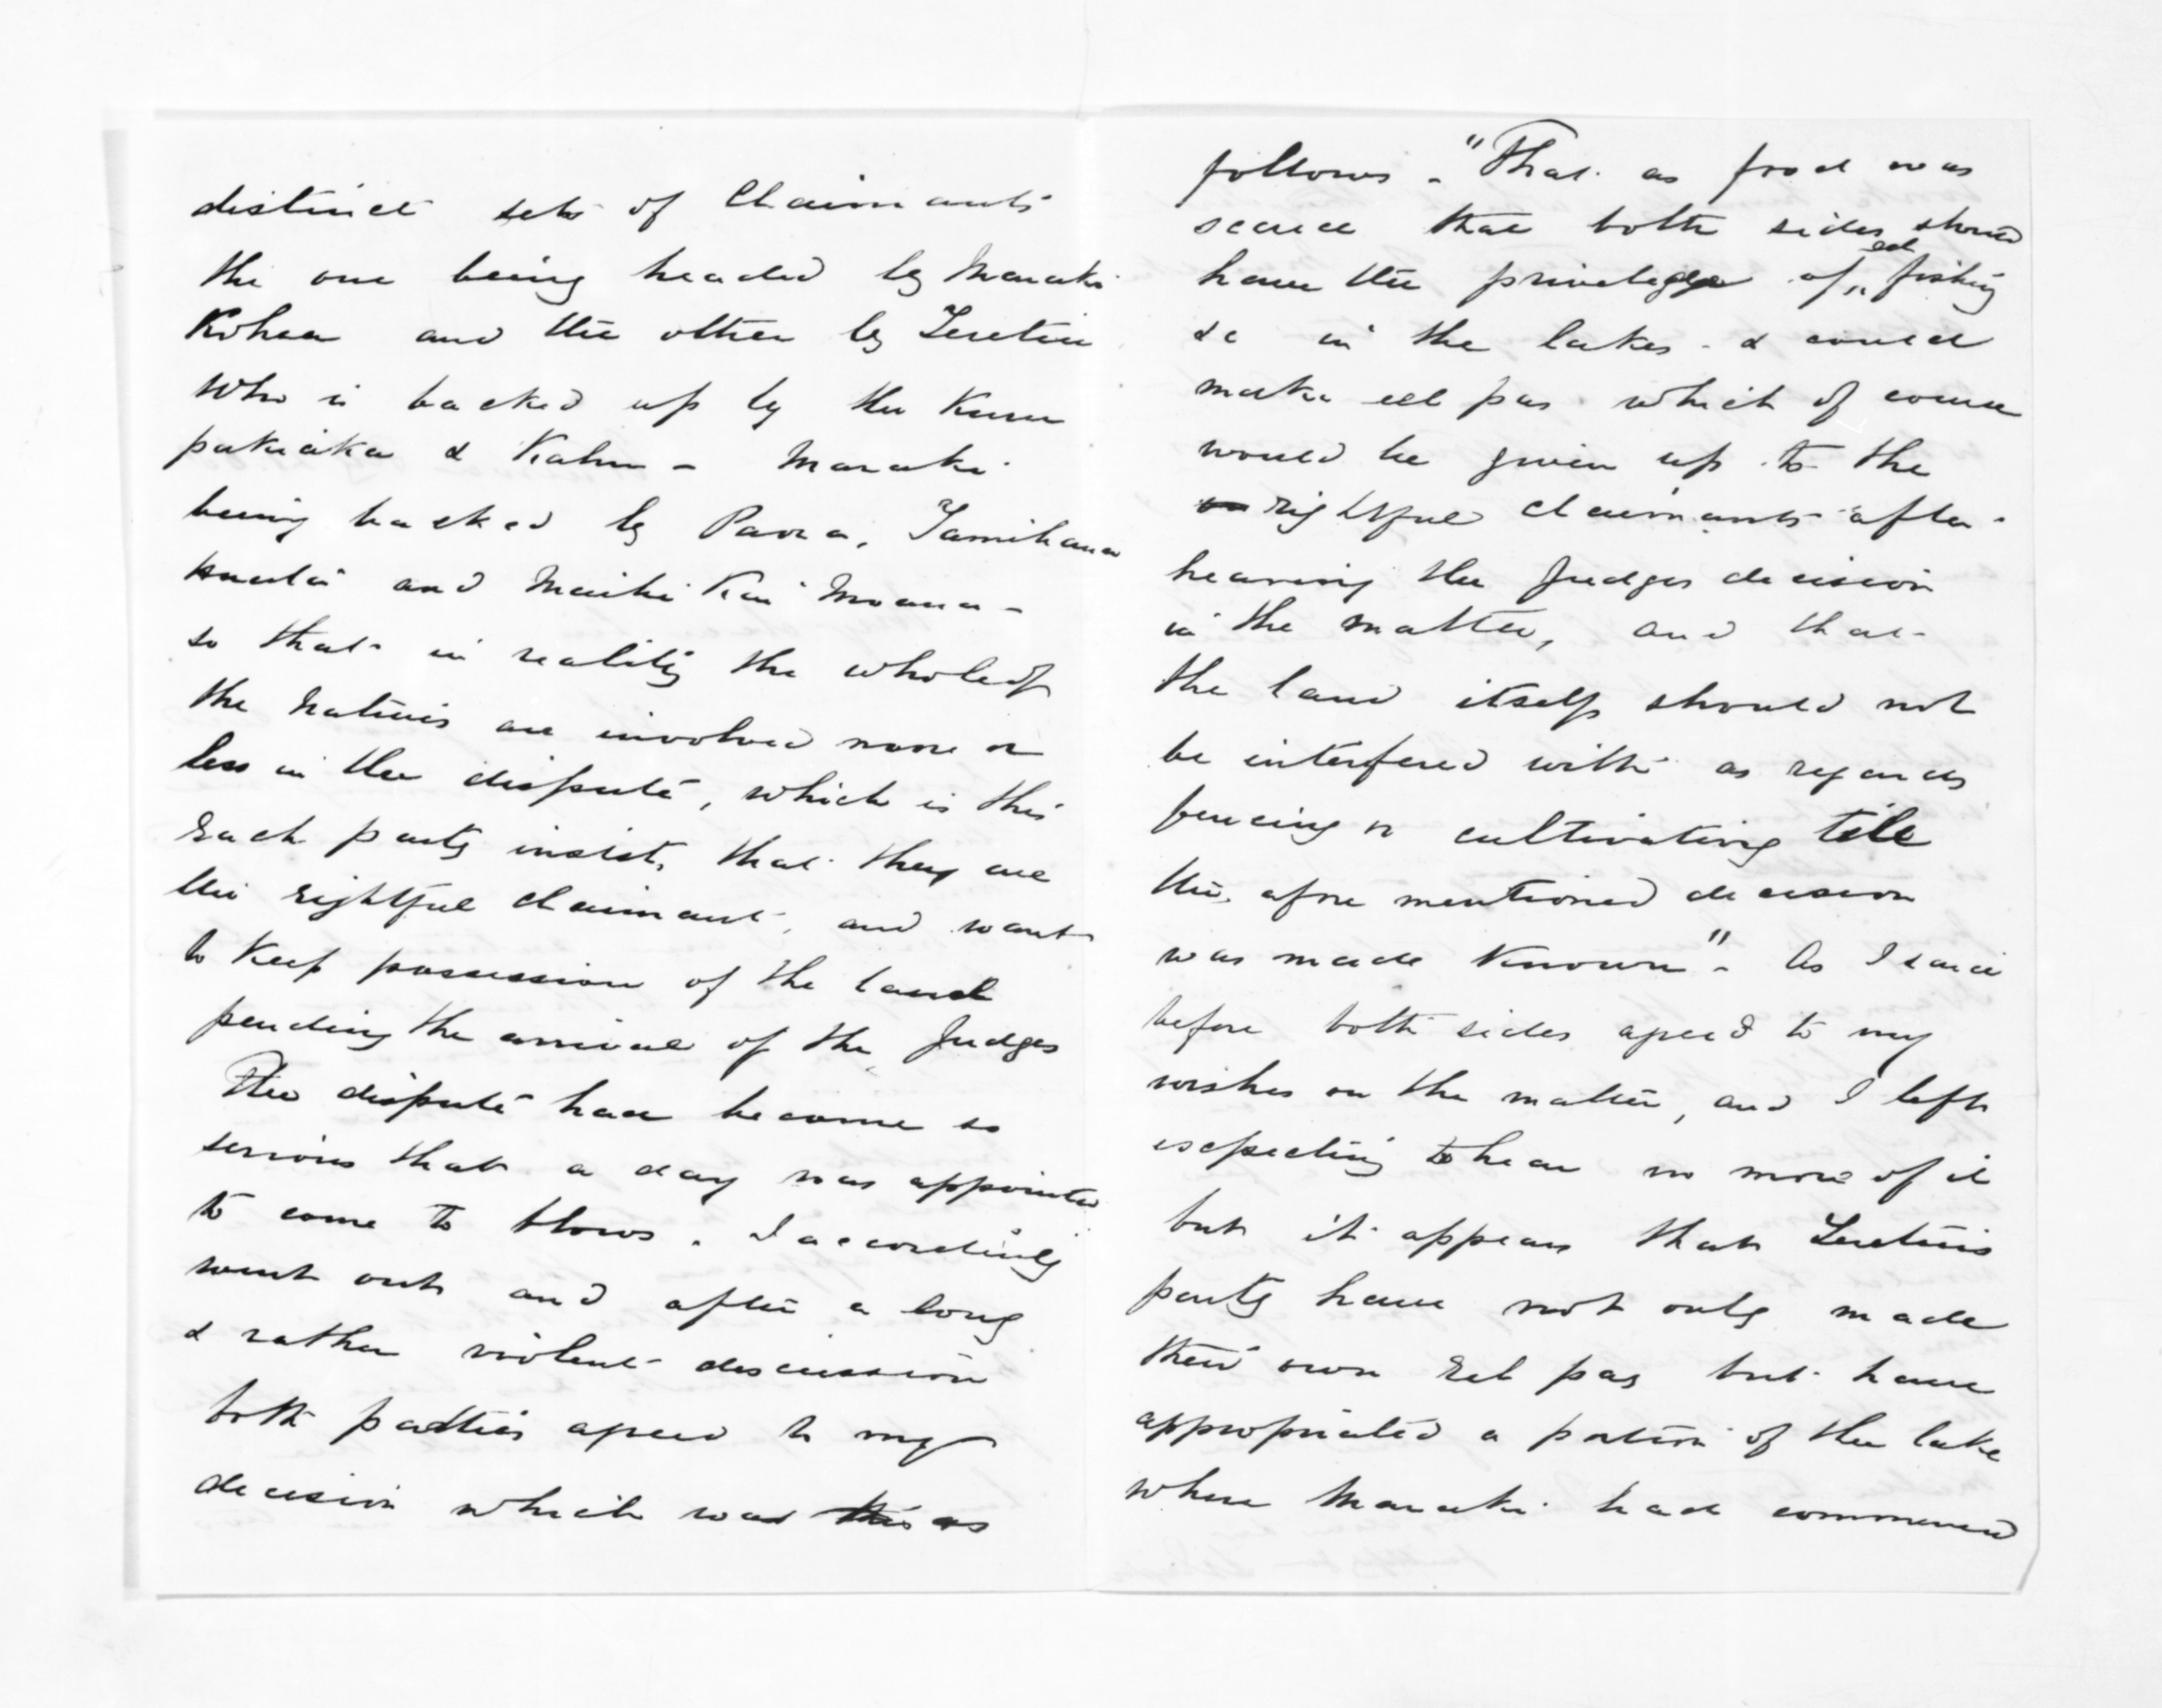 distinct sets of Claimants
the one being headed by Maraki
Kohea and the other by Teretiu
who is backed up by the Kuru
pakiaka & Kahu - Maraki
being backed by Paora, Tamihana
and Maihi Kai Moana -
so that in reality the whole of
the Natives are involved more or
less in the dispute, which is this
Each party insists that they are
the rightful claimant, and want
to keep possession of the land
pending the arrival of the Judges
The dispute had become so
serious that a day was appointed
to come to blows. I accordingly
went out and after a long
& rather violent discussion
both parties agreed to my
decision which was this as
follows - "That as food was
scarce that both sides should
have the privilege of eel fishing
&c in the lakes - & could
make eel pas which of course
would be given up to the
rightful claimants after
hearing the Judges decision
in the matter, and that
the land itself should not
be interfered with as regards
fencing or cultivating till
the afore mentioned decision
was made known" - As I said
before both sides agreed to my
wishes on the matter, and I left
expecting to hear no more of it
but it appears that Teretiu's
party have not only made
their own Eel pas but have
appropriated a portion of the lake
where Maraki had commenced